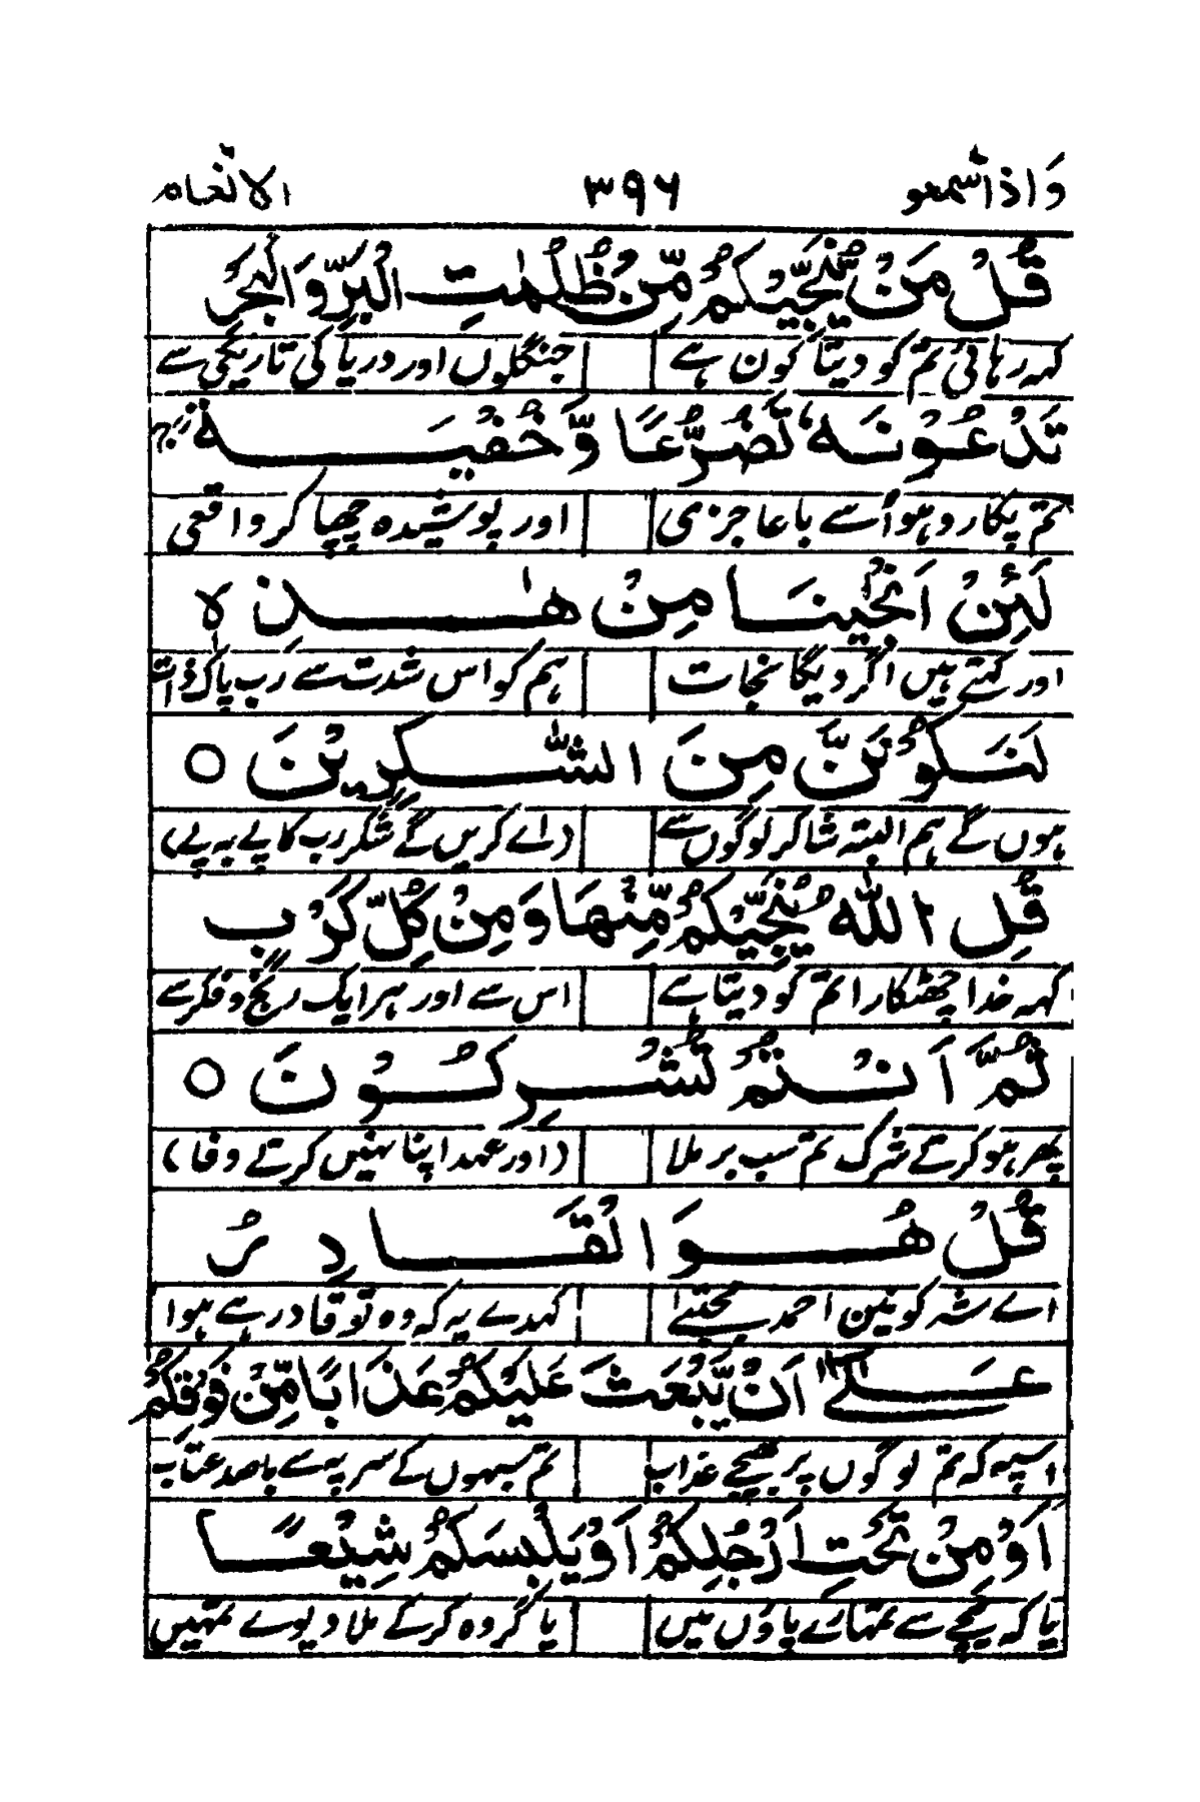 وَاذاسمعو ۳۹۶ الانعام
قُلْ مَنْ يُّنَجِّيْكُمْ مِّنْ ظُلُمٰتِ الْبَرِّ وَالْبَحْرِ
کہہ رہائی تم کو دیتا کون ہے جنگلوں اور دریا کی تاریکی سے
تَدْعُوْنَهٗ تَضَرُّعًا وَّخُفْيَةً
تم پکارو ہو اُسے با عاجزی اور پوشیدہ چھپا کر واقعی
لَئِنْ اَنْجٰىنَا مِنْ هٰذِهٖ
اور کہتے ہیں اگر دیگا نجات ہم کو اس شدت سے رب پاک ذات
لَنَكُوْنَنَّ مِنَ الشّٰكِرِيْنَ ○
ہوں گے ہم البتہ شاکر لوگوں سے (داے کریں گے شکر رب کا پے بہ پے)
قُلِ اللّٰهُ يُنَجِّيْكُمْ مِّنْهَا وَمِنْ كُلِّ كَرْبٍ
کہہ خدا چھٹکارا تم کو دیتا ہے اس سے اور ہر ایک رنج و فکر سے
ثُمَّ اَنْتُمْ تُشْرِكُوْنَ ○
پھر ہو کرتے شرک تم سب برملا (اور عہد اپنا نہیں کرتے وفا)
قُلْ هُوَ الْقَادِرُ
اے شہ کونین احمد مجتبےٰ کہدے یہ کہ وہ تو قادر ہے ہوا
عَلٰٓى اَنْ يَّبْعَثَ عَلَيْكُمْ عَذَابًا مِّنْ فَوْقِكُمْ
اسپہ کہ تم لوگوں پر بھیجے عذاب تم سبہوں کے سر پہ سے باصد عتاب
اَوْ مِنْ تَحْتِ اَرْجُلِكُمْ اَوْ يَلْبِسَكُمْ شِيَعًا
یا کہ نیچے سے تمہارے پاؤں میں یا گروہ کرکے ملا دیوے تمہیں